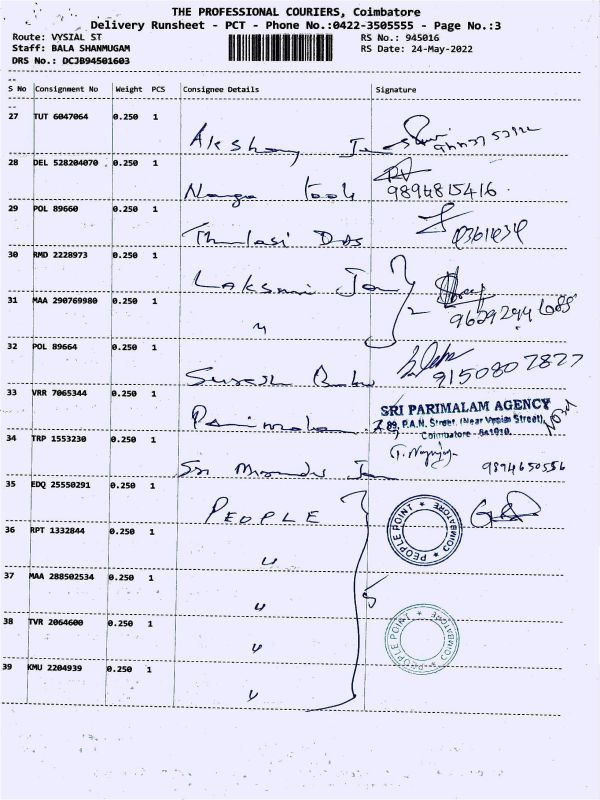 THE PROFESSIONAL COURIERS, Coimbatore
Delivery Runsheet - PCT - Phone No.:0422-3505555 - Page No.:3
Route: VYSIAL ST
RS No.: 945016
Staff: BALA SHANMUGAM
RS Date: 24-May-2022
DRS No.: DCJB94501603
S No Consignment No Weight PCS Consignee Details Signature
27 TUT 6047064 0.250 1
28 DEL 528204070 0.250 1
9894815416
29 POL 89660 0.250 1 Thulasi Das
30 RMD 2228973 0.250 1 Lakshmi
31 MAA 290769980 0.250 1 " 2
32 POL 89664 0.250 1 Suresh
9150807827
33 VRR 7065344 0.250 1 Parimalam
SRI PARIMALAM AGENCY
89, P.A.N. Street, (Near Vysial Street),
Coimbatore
34 TRP 1553230 0.250 1 Sri
9894650556
35 EDQ 25550291 0.250 1 PEOPLE
PEOPLE POINT * COIMBATORE *
36 RPT 1332844 0.250 1 "
37 MAA 288502534 0.250 1 " 5
38 TVR 2064600 0.250 1 "
PEOPLE POINT * COIMBATORE *
39 KMU 2204939 0.250 1 "